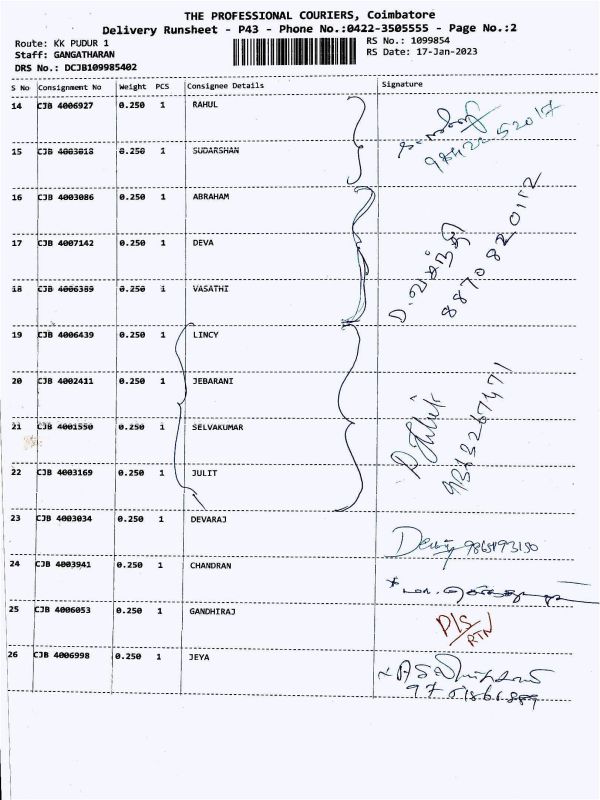 THE PROFESSIONAL COURIERS, Coimbatore
Delivery Runsheet - P43 - Phone No.:0422-3505555 - Page No.:2
Route: KK PUDUR 1
Staff: GANGATHARAN
DRS No.: DCJB109985402
RS No.: 1099854
RS Date: 17-Jan-2023
S No Consignment No Weight PCS Consignee Details Signature
14 CJB 4006927 0.250 1 RAHUL
15 CJB 4003018 0.250 1 SUDARSHAN
16 CJB 4003086 0.250 1 ABRAHAM
17 CJB 4007142 0.250 1 DEVA
8870820112
18 CJB 4006389 0.250 1 VASATHI
19 CJB 4006439 0.250 1 LINCY
20 CJB 4002411 0.250 1 JEBARANI
21 CJB 4001550 0.250 1 SELVAKUMAR
22 CJB 4003169 0.250 1 JULIT
23 CJB 4003034 0.250 1 DEVARAJ
24 CJB 4003941 0.250 1 CHANDRAN
25 CJB 4006053 0.250 1 GANDHIRAJ D/S RTN
26 CJB 4006998 0.250 1 JEYA